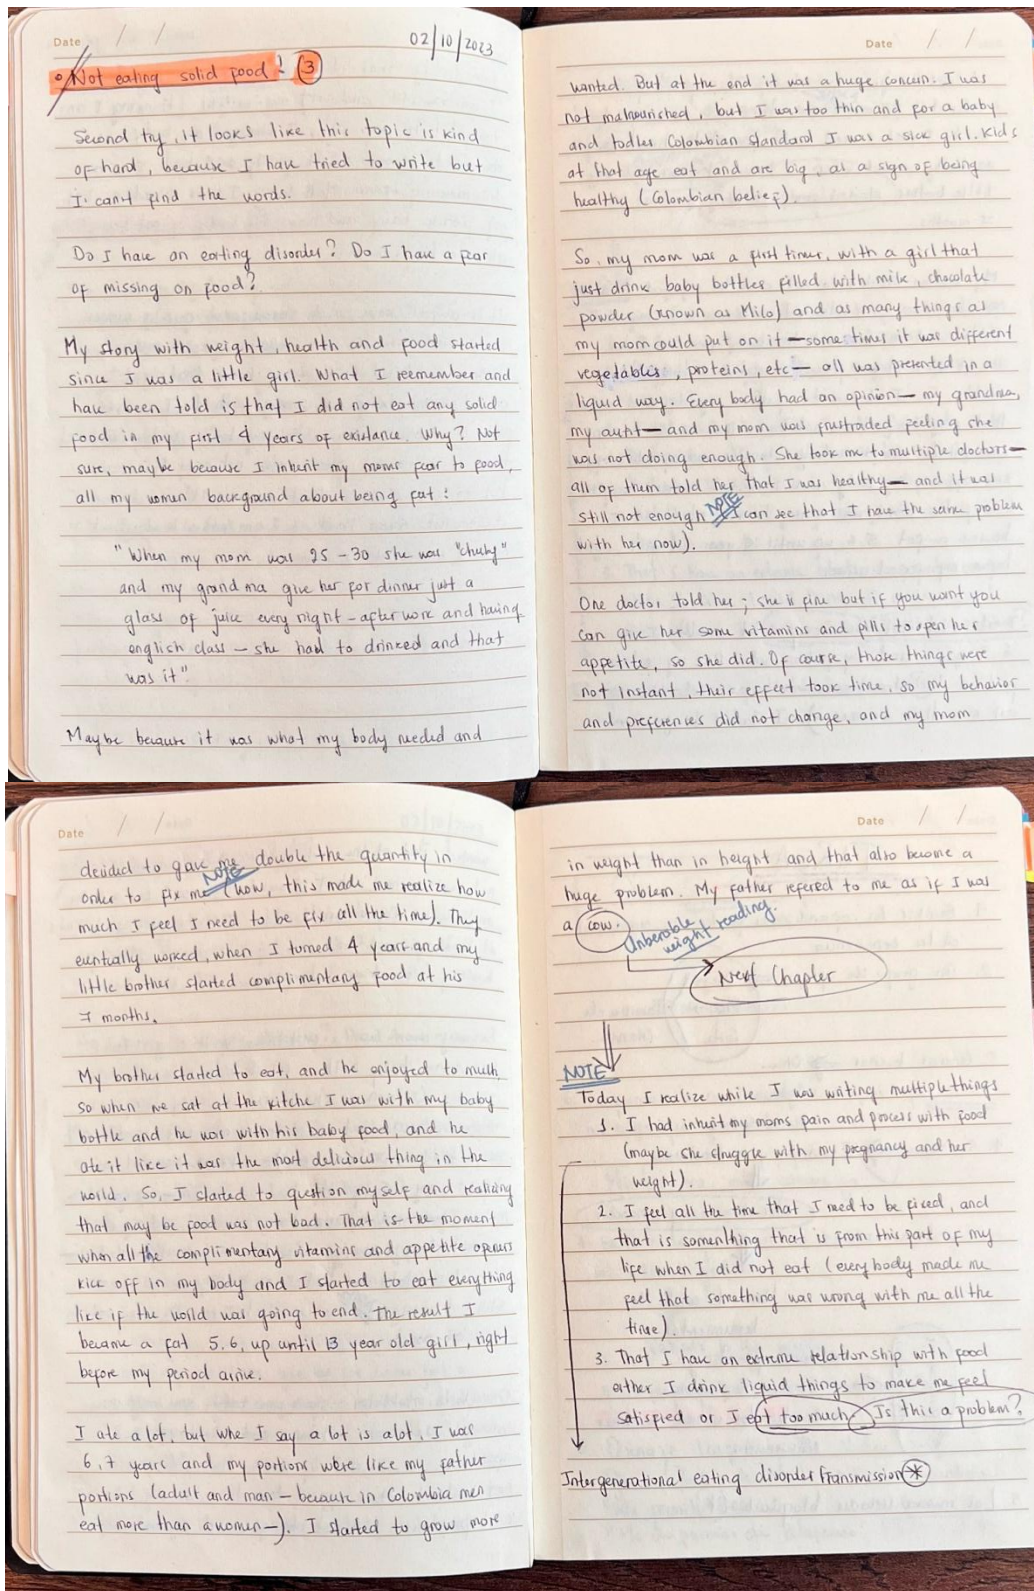 Date / /
02/10/2023
• Not eating solid food! ③
Second try, it looks like this topic is kind
of hard, because I have tried to write but
I can't find the words.
Do I have an eating disorder? Do I have a fear
of missing on food?
My story with weight, health and food started
since I was a little girl. What I reemember and
have been told is that I did not eat any solid
food in my first 4 years of existance. Why? Not
sure, maybe because I inherit my moms fear to food,
all my women background about being fat:
"When my mom was 25-30 she was "chuby"
and my grand ma give her for dinner just a
glass of juice every night - after work and having
english class - she had to drinked and that
was it".
Maybe because it was what my body needed and
Date / /
wanted. But at the end it was a huge concern. I was
not malnourished, but I was too thin and for a baby
and todler Colombian standard I was a sick girl. Kids
at that age eat and are big, as a sign of being
healthy (Colombian belief).
So, my mom was a first timer, with a girl that
just drink baby bottles filled with milk, chocolate
powder (known as Milo) and as many things as
my mom could put on it — some times it was different
vegetables, proteins, etc — all was presented in a
liquid way. Every body had an opinion — my grandma,
my aunt — and my mom was frustraded feeling she
was not doing enough. She took me to multiple doctors —
all of them told her that I was healthy — and it was
still not enough NOTE (I can see that I have the same problem
with her now).
One doctor told her; she is fine but if you want you
can give her some vitamins and pills to open her
appetite, so she did. Of course, those things were
not instant, their effect took time, so my behavior
and preferences did not change, and my mom
Date / /
decided to gave me double the quantity in
order to fix me NOTE (wow, this made me realize how
much I feel I need to be fix all the time). They
eventually worked, when I turned 4 years and my
little brother started complimentary food at his
7 months.
My brother started to eat, and he enjoyed to much,
so when we sat at the kitche I was with my baby
bottle and he was with his baby food, and he
ate it like it was the most delicious thing in the
world. So, I started to question myself and realizing
that may be food was not bad. That is the moment
when all the complimentary vitamins and appetite openers
kick off in my body and I started to eat everything
like if the world was going to end. The result I
became a fat 5,6, up until 13 year old girl, right
before my period arrive.
I ate a lot, but whe I say a lot is alot, I was
6,7 years and my portions were like my father
portions (adult and man - because in Colombia men
eat more than a women -). I started to grow more
Date / /
in weight than in height and that also become a
huge problem. My father refered to me as if I was
a cow.
Unberable
weight reading.
Next Chapter
NOTE
Today I realize while I was writing multiple things
1. I had inherit my moms pain and process with food
(maybe she struggle with my pregnancy and her
weight).
2. I feel all the time that I need to be fixed, and
that is something that is from this part of my
life when I did not eat (every body made me
feel that something was wrong with me all the
time).
3. That I have an extreme relationship with food
either I drink liquid things to make me feel
satisfied or I eat too much. Is this a problem?
Intergenerational eating disorder transmission *